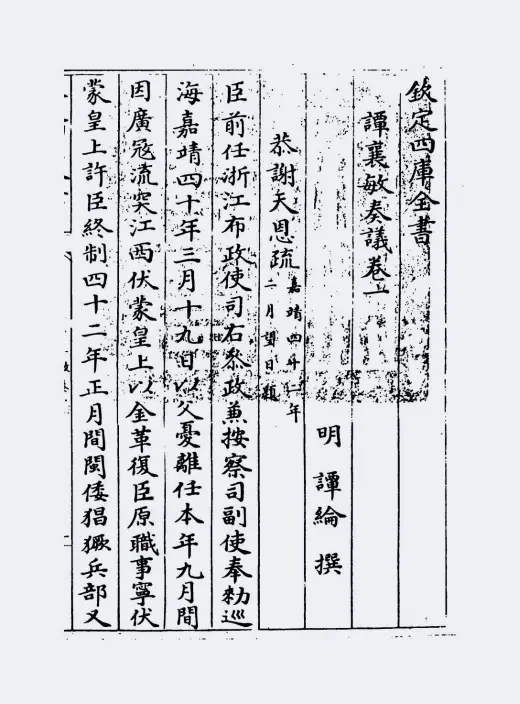 欽定四庫全書
譚襄敏奏議卷一
明 譚綸 撰
恭謝天恩疏
嘉靖四十二年
二月望日題
臣前任浙江布政使司右叅政兼按察司副使奉勅巡
海嘉靖四十年三月十九日以父憂離任本年九月間
因廣冦流突江西伏蒙皇上以金革復臣原職事寧伏
蒙皇上許臣終制四十二年正月間閩倭猖獗兵部又